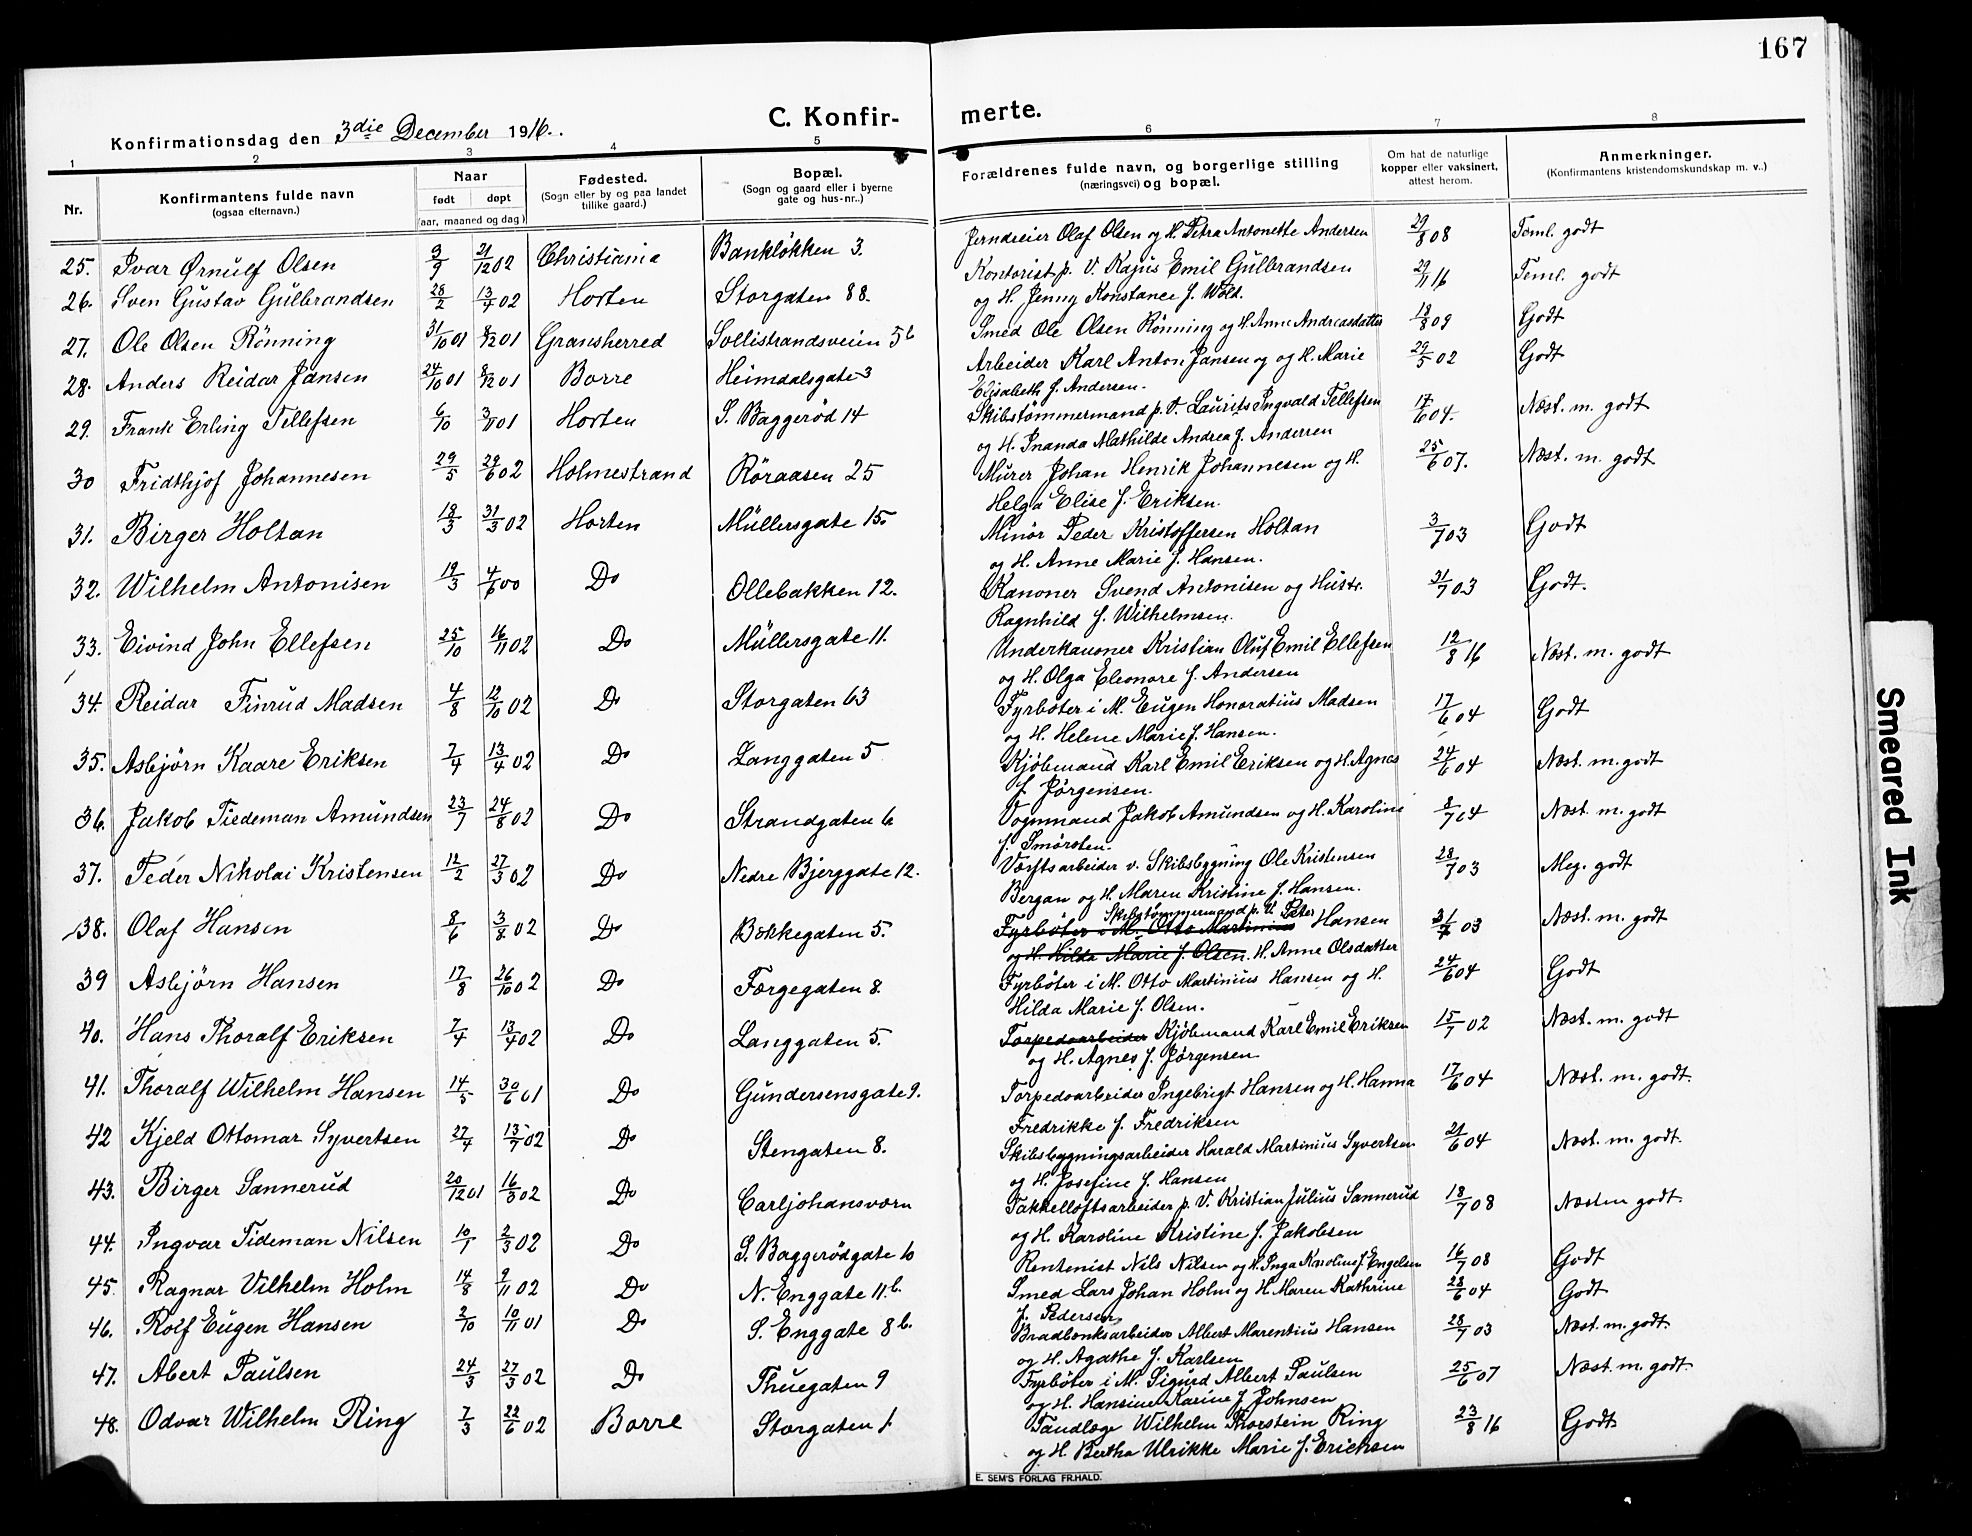 167
Konfirmationsdag den 3die December 1916.
C. Konfir- merte.
1 2 3 4 5 6 7 8
Nr.
Konfirmantens fulde navn
(ogsaa efternavn.)
Naar
født døpt
(aar, maaned og dag)
Fødested.
(Sogn eller by og paa landet
tillike gaard.)
Bopæl.
(Sogn og gaard eller i byerne
gate og hus-nr..)
Forældrenes fulde navn, og borgerlige stilling
(næringsvei) og bopæl.
Om hat de naturlige
kopper eller vaksinert,
attest herom.
Anmerkninger.
(Konfirmantens kristendomskundskap m. v..)
25. Ivar Ørnulf Olsen 9/9 21/12 02 Christiania Bankløkken 3. Jerndreier Olaf Olsen og H. Petra Antonette Andersen 29/8 08 Teml. godt
26. Sven Gustav Gulbrandsen 28/2 13/4 02 Horten Storgaten 88. Kontorist p. V. Kajus Emil Gulbrandsen 29/11 16 Teml. godt
og H. Jenny Konstance f. Wold.
27. Ole Olsen Rønning 31/10 01 8/12 01 Gransherred Sollistrandsveien 5b Smed Ole Olsen Rønning og H. Anne Andreasdatter 18/8 09 Godt
28. Anders Reidar Jansen 24/10 01 8/12 01 Borre Heimdalsgate 3 Arbeider Karl Anton Jansen og og H. Marie 29/5 02 Godt
Elisabeth f. Andersen.
29. Frank Erling Tellefsen 6/10 3/11 01 Horten S. Baggerød 14 Skibstømmermand p. V. Laurits Ingvald Tellefsen 17/6 04. Næst. m. godt
og H. Inanda Mathilde Andrea f. Andersen
30 Fridthjof Johannesen 29/5 29/6 02 Holmestrand Røraasen 25 Murer Johan Henrik Johannesen og H. 25/6 07. Næst. m. godt
Helga Elise f. Eriksen.
31. Birger Holtan 18/3 31/3 02 Horten Müllersgate 15. Minør Peder Kristoffersen Holtan 3/7 03 Godt
og H. Anne Marie f. Hansen.
32. Wilhelm Antonisen 19/3 4/6 00 Do Ollebakken 12. Kanoner Svend Antonisen og Hustr. 31/7 03 Godt.
Ragnhild f. Wilhelmsen.
33. Eivind John Ellefsen 25/10 16/11 02 Do Müllersgate 11. Underkanoner Kristian Oluf Emil Ellefsen 12/8 16 Næst. m. godt
og H. Olga Eleonore f. Andersen
34. Reidar Finrud Madsen 4/8 12/10 02 Do Storgaten 63 Fyrbøter i M. Eugen Honoratius Madsen 17/6 04 Godt
og H. Helene Marie f. Hansen.
35. Asbjørn Kaare Eriksen 7/4 13/4 02 Do Langgaten 5 Kjøbmand Karl Emil Eriksen og H. Agnes 24/6 04 Næst. m. godt
f. Jørgensen.
36. Jakob Tiedeman Amundsen 23/7 24/8 02 Do Strandgaten 6 Vognmand Jakob Amundsen og H. Karoline 8/7 04 Næst. m. godt
f. Smørsten.
37. Peder Nikolai Kristensen 12/2 27/3 02 Do Nedre Bjerggate 12. Værftsarbeider v. Skibsbygning Ole Kristensen 28/7 03 Meg. godt
Bergan og H. Maren Kristine f. Hansen.
Skibstømmermand p. V. Peter
38. Olaf Hansen 8/6 3/8 02 Do Bakkegaten 5. Fyrbøter i M. Otto Martinius Hansen 31/7 03 Næst. m. godt
og H. Hilda Marie f. Olsen. H. Anne Olsdatter
39 Asbjørn Hansen 17/8 26/10 02 Do Færgegaten 8. Fyrbøter i M. Otto Martinius Hansen og H. 24/6 04 Godt
Hilda Marie f. Olsen.
40. Hans Thoralf Eriksen 7/4 13/4 02 Do Langgaten 5. Torpedoarbeider Kjøbmand Karl Emil Eriksen 15/7 02 Næst. m. godt
og H. Agnes f. Jørgensen
41. Thoralf Wilhelm Hansen 14/5 30/6 01 Do Gundersensgate 9. Torpedoarbeider Ingebrigt Hansen og H. Hanna 17/6 04 Næst. m. godt.
Fredrikke f. Fredriksen
42 Kjeld Ottomar Syvertsen 27/4 13/7 02 Do Stengaten 8. Skibsbygningsarbeider Harald Martinius Syvertsen 21/6 04 Næst. m. godt.
og H. Josefine f. Hansen
43. Birger Sannerud 20/12 01 16/3 02 Do Carljohansværn Takkelloftsarbeider p. V. Kristian Julius Sannerud 18/7 08 Næsten godt.
og H. Karoline Kristine f. Jakobsen
44. Ingvar Tideman Nilsen 10/1 2/3 02 Do S. Baggerødgate 10 Rentenist Nils Nilsen og H. Inga Karoline f. Engelsen 16/7 08 Godt
45. Ragnar Vilhelm Holm 14/8 9/11 02 Do N. Enggate 11.b. Smed Lars Johan Holm og H. Maren Kathrine 28/6 04 Godt
f. Pedersen
46. Rolf Eugen Hansen 2/10 10/11 01 Do S. Enggate 8b. Bradbænksarbeider Albert Marentius Hansen 28/7 03 Næst. m. godt.
og H. Agathe f. Karlsen
47. Abert Paulsen 24/3 27/3 02 Do Thuegaten 9 Fyrbøter i M. Sigurd Albert Paulsen 25/6 07 Næst. m. godt
og H. Hansine Karine f. Johnsen
48. Odvar Wilhelm Ring 7/3 22/6 02 Borre Storgaten 1. Tandlæge Wilhelm Thorstein Ring 23/8 16 Godt
og H. Bertha Ulrikke Marie f. Erichsen
E. SEM'S FORLAG FR.HALD.
Smeared Ink